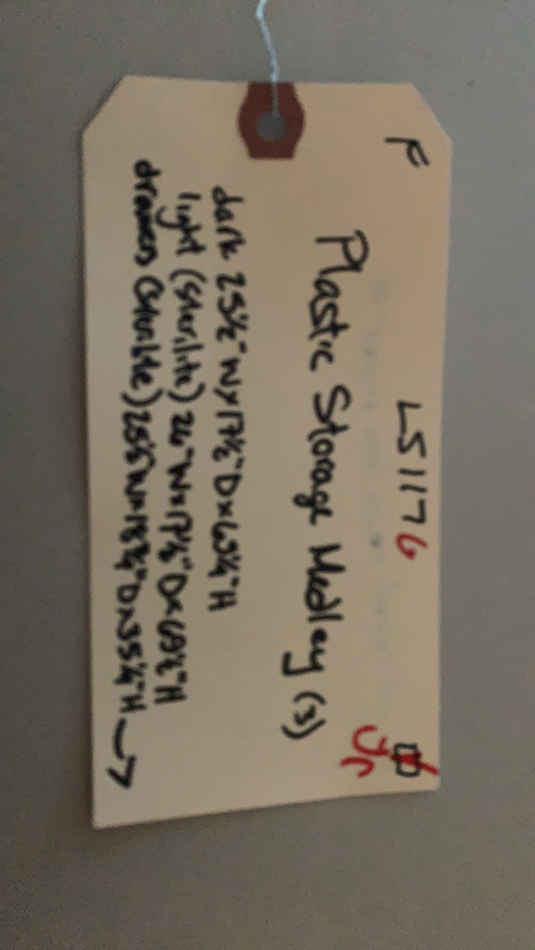 F L51176
Jr
Plastic Storage Medley (3)
dark 25½" W x 17½" D x 65¼" H
light (Sterilite) 26" W x 17½" D x 69½" H
drawers 25½" W x 18¾" D x 35¼" H →